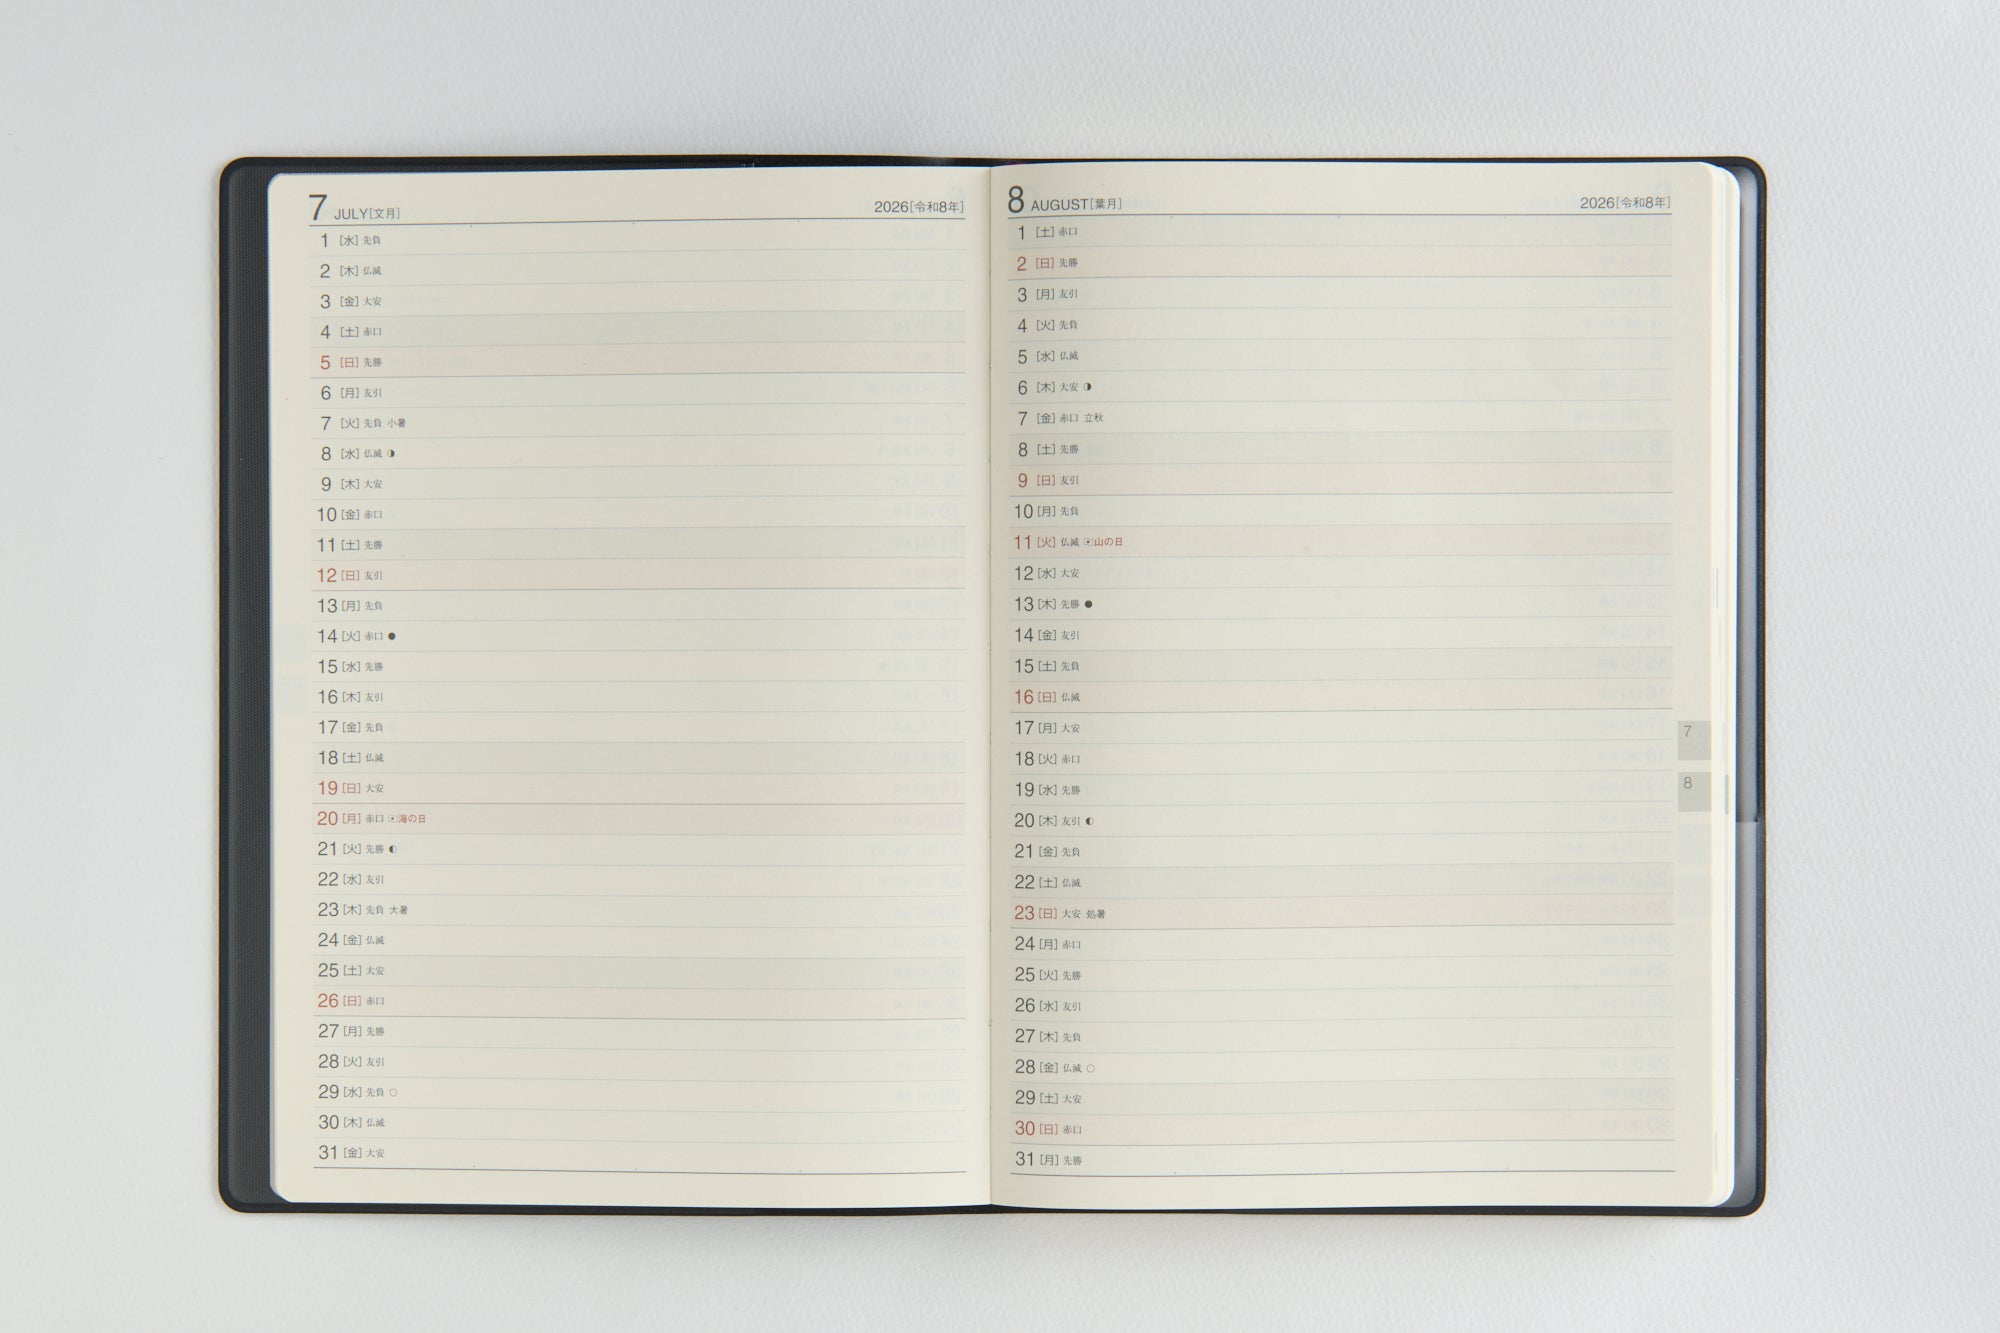 7 JULY[文月] 2026[令和8年]
1 [水] 先負
2 [木] 仏滅
3 [金] 大安
4 [土] 赤口
5 [日] 先勝
6 [月] 友引
7 [火] 先負 小暑
8 [水] 仏滅 ◑
9 [木] 大安
10 [金] 赤口
11 [土] 先勝
12 [日] 友引
13 [月] 先負
14 [火] 赤口 ●
15 [水] 先勝
16 [木] 友引
17 [金] 先負
18 [土] 仏滅
19 [日] 大安
20 [月] 赤口 海の日
21 [火] 先勝 ◐
22 [水] 友引
23 [木] 先負 大暑
24 [金] 仏滅
25 [土] 大安
26 [日] 赤口
27 [月] 先勝
28 [火] 友引
29 [水] 先負 ○
30 [木] 仏滅
31 [金] 大安
8 AUGUST[葉月] 2026[令和8年]
1 [土] 赤口
2 [日] 先勝
3 [月] 友引
4 [火] 先負
5 [水] 仏滅
6 [木] 大安 ◑
7 [金] 赤口 立秋
8 [土] 先勝
9 [日] 友引
10 [月] 先負
11 [火] 仏滅 山の日
12 [水] 大安
13 [木] 先勝 ●
14 [金] 友引
15 [土] 先負
16 [日] 仏滅
17 [月] 大安
18 [火] 赤口
19 [水] 先勝
20 [木] 友引 ◐
21 [金] 先負
22 [土] 仏滅
23 [日] 大安 処暑
24 [月] 赤口
25 [火] 先勝
26 [水] 友引
27 [木] 先負
28 [金] 仏滅 ○
29 [土] 大安
30 [日] 赤口
31 [月] 先勝
7
8